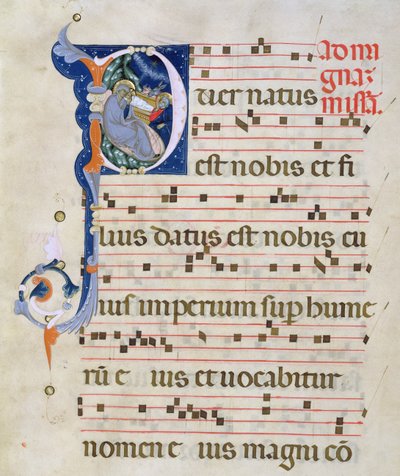 Ad ma
gnaz
missā.
Puer natus
est nobis et fi
lius datus est nobis cu
ius imperium sup̄ hume
rū e ius et uocabitur
nomen e ius magni cō